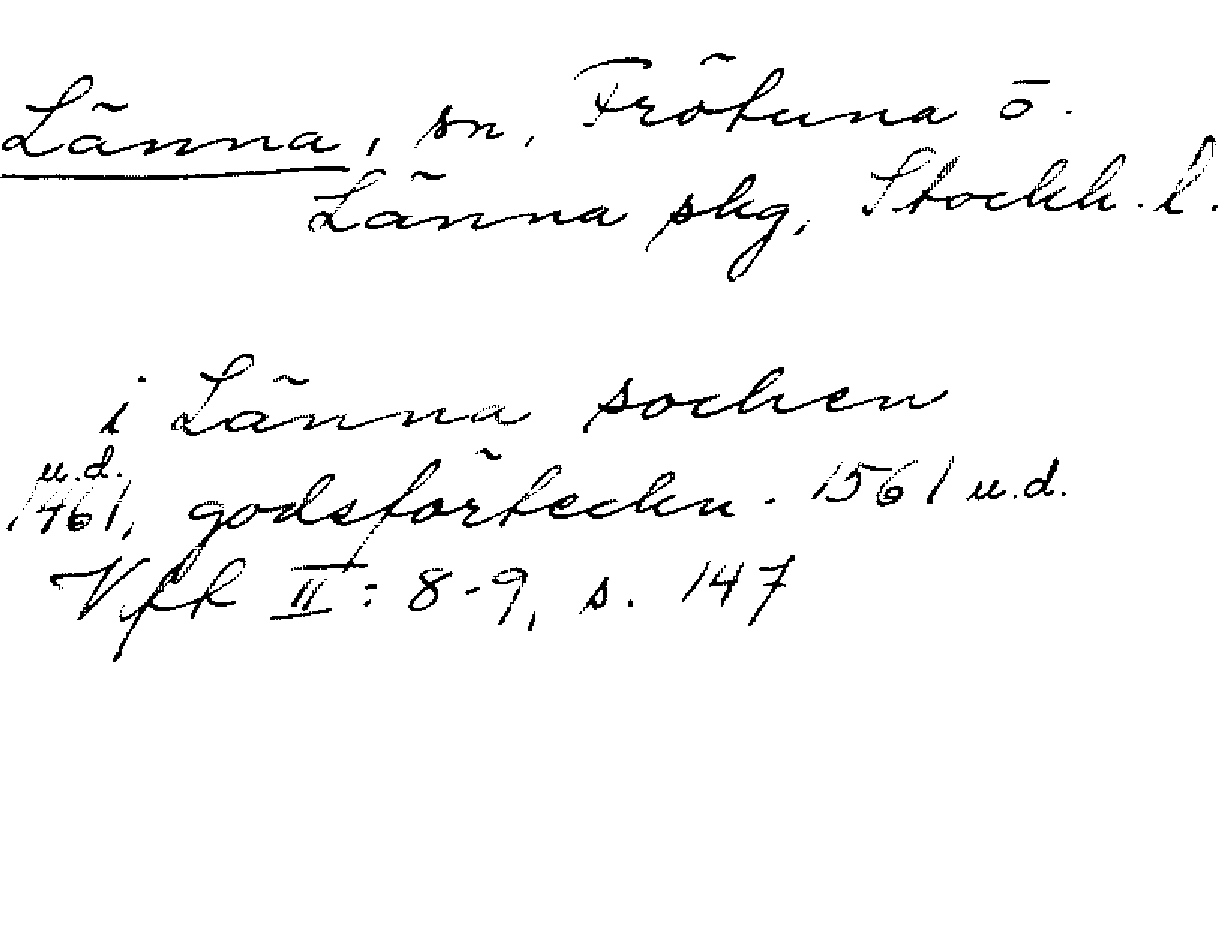 Länna, sn, Frötuna ö.
Länna skg, Stockh. l.
i Länna sochen
u.d.
1461, godsförteckn. 1561 u.d.
VfrR II: 8-9, s. 147